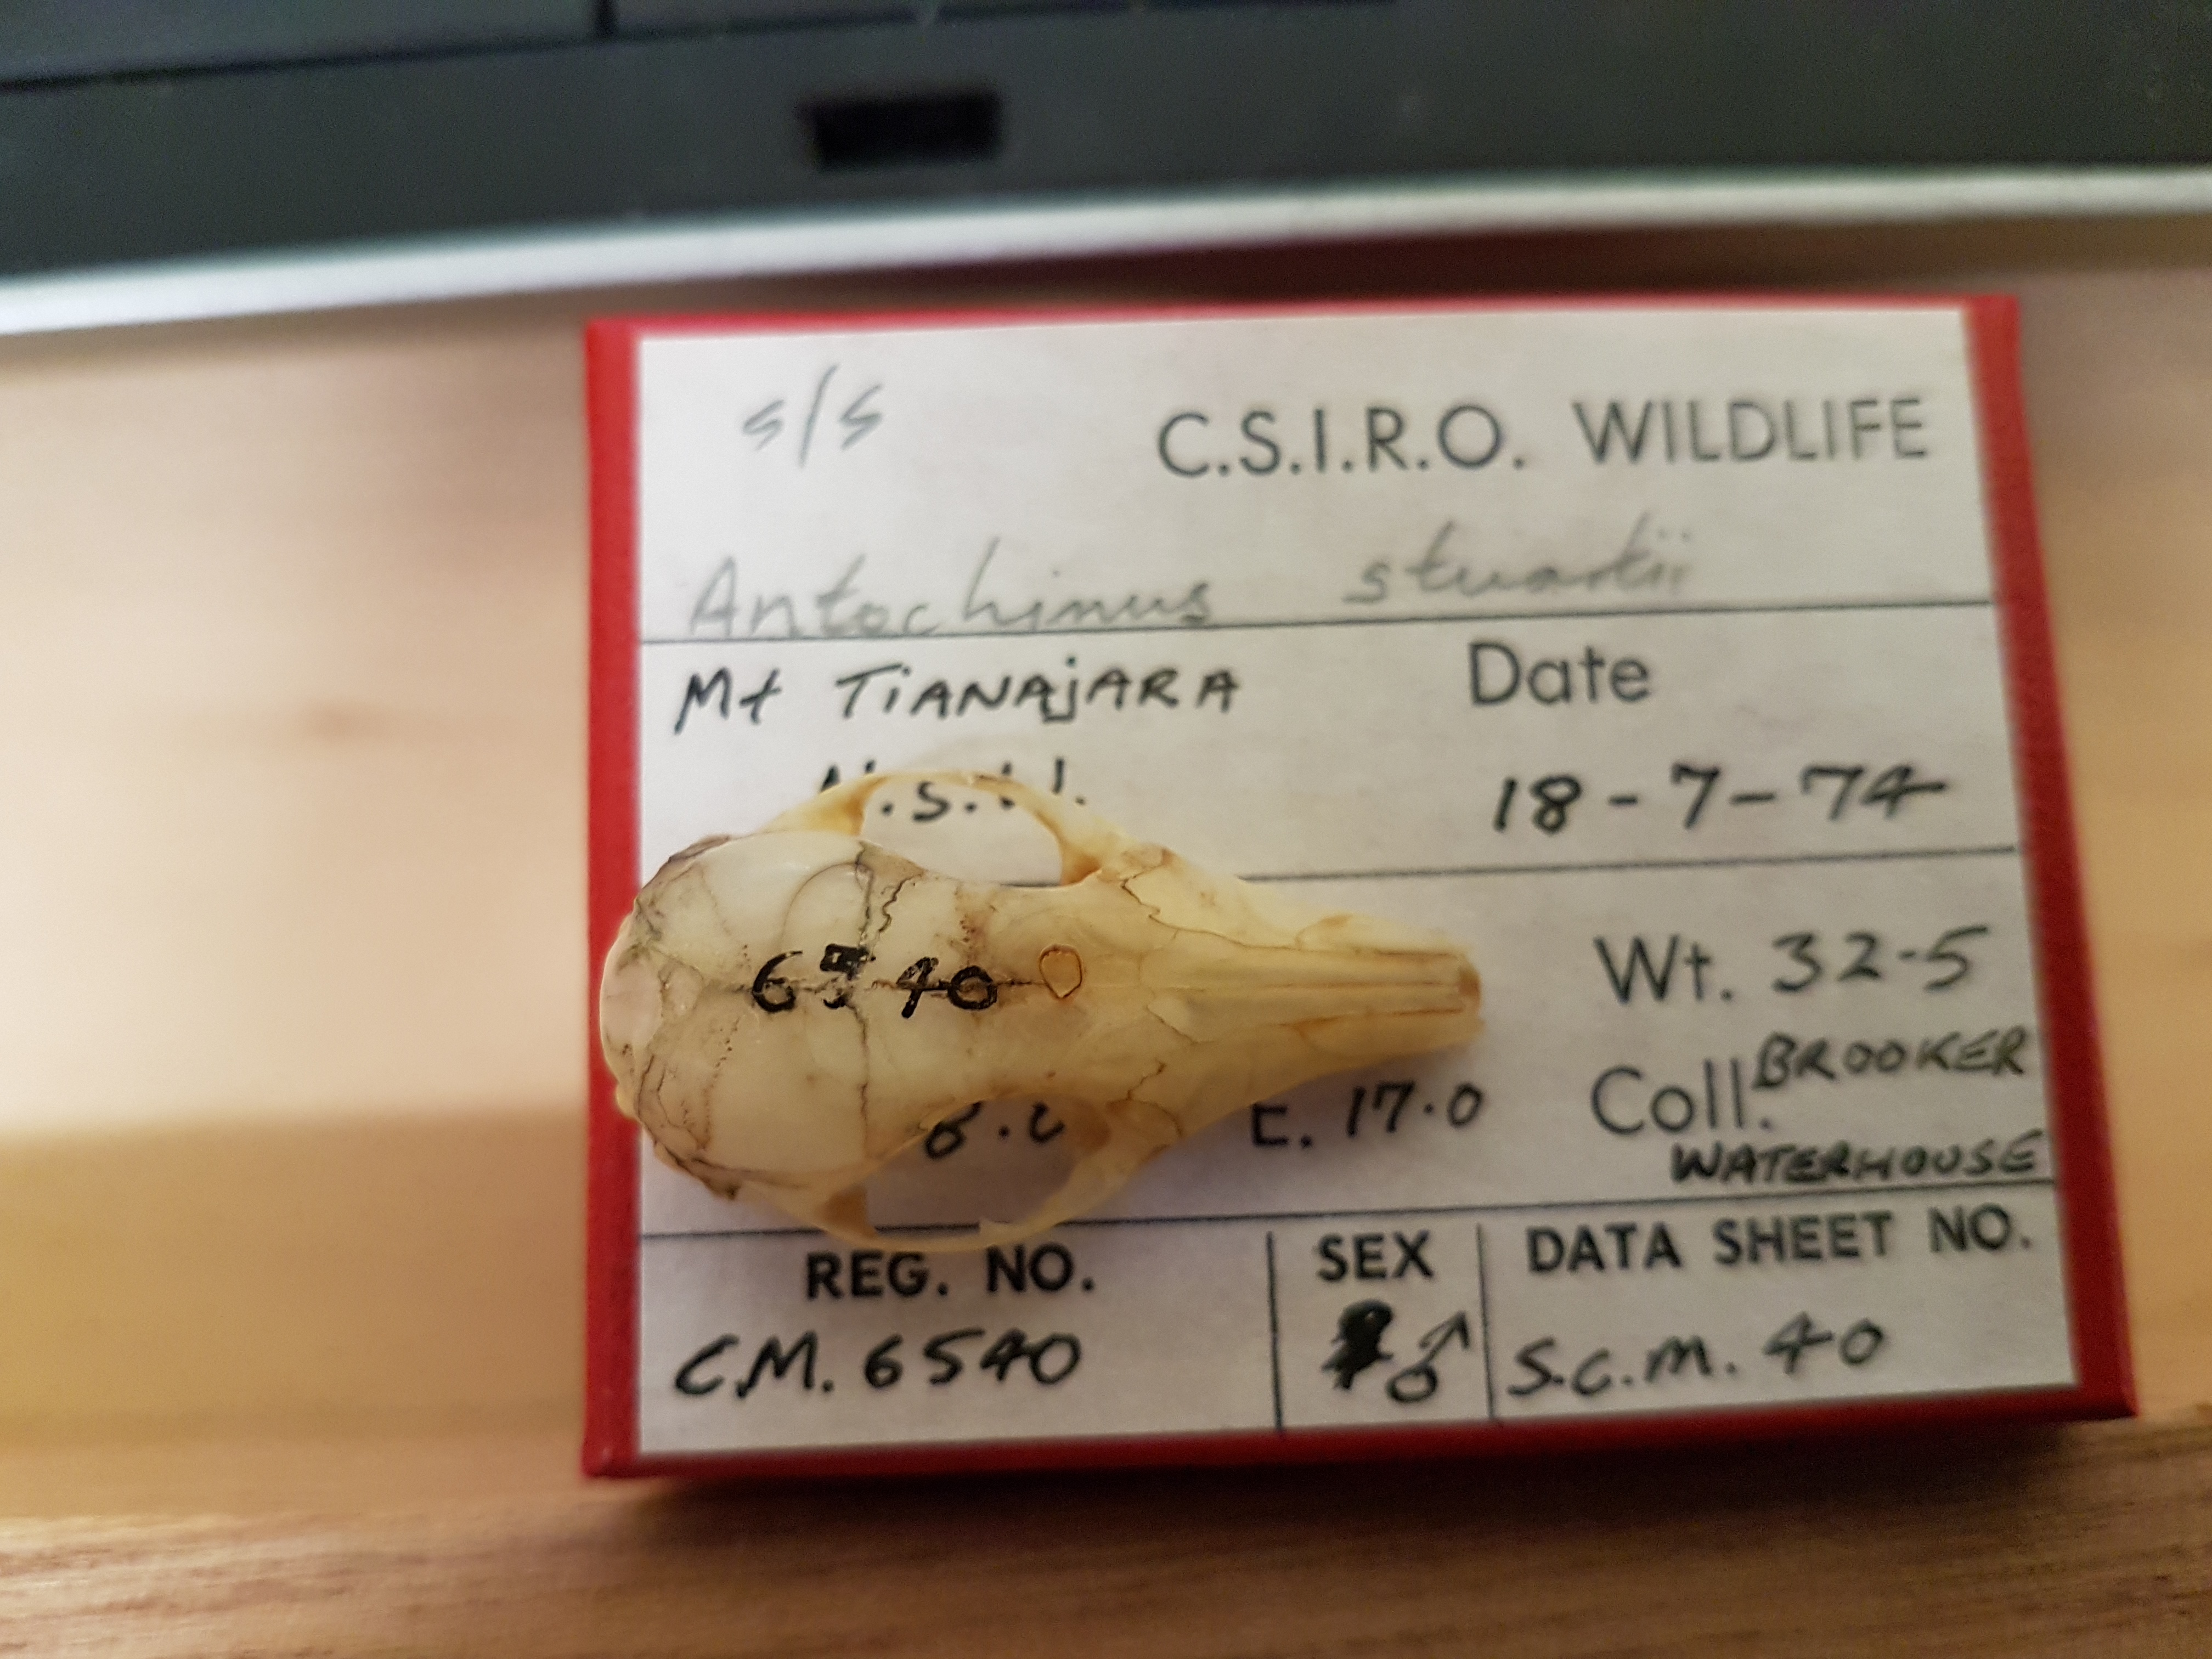 S/S C.S.I.R.O. WILDLIFE
Antechinus stuartii
Mt TIANAJARA Date
.S. 18-7-74
Wt. 32.5
E. 17.0 Coll. BROOKER
WATERHOUSE
REG. NO. SEX DATA SHEET NO.
CM. 6540 ♂ S.C.M. 40
6540